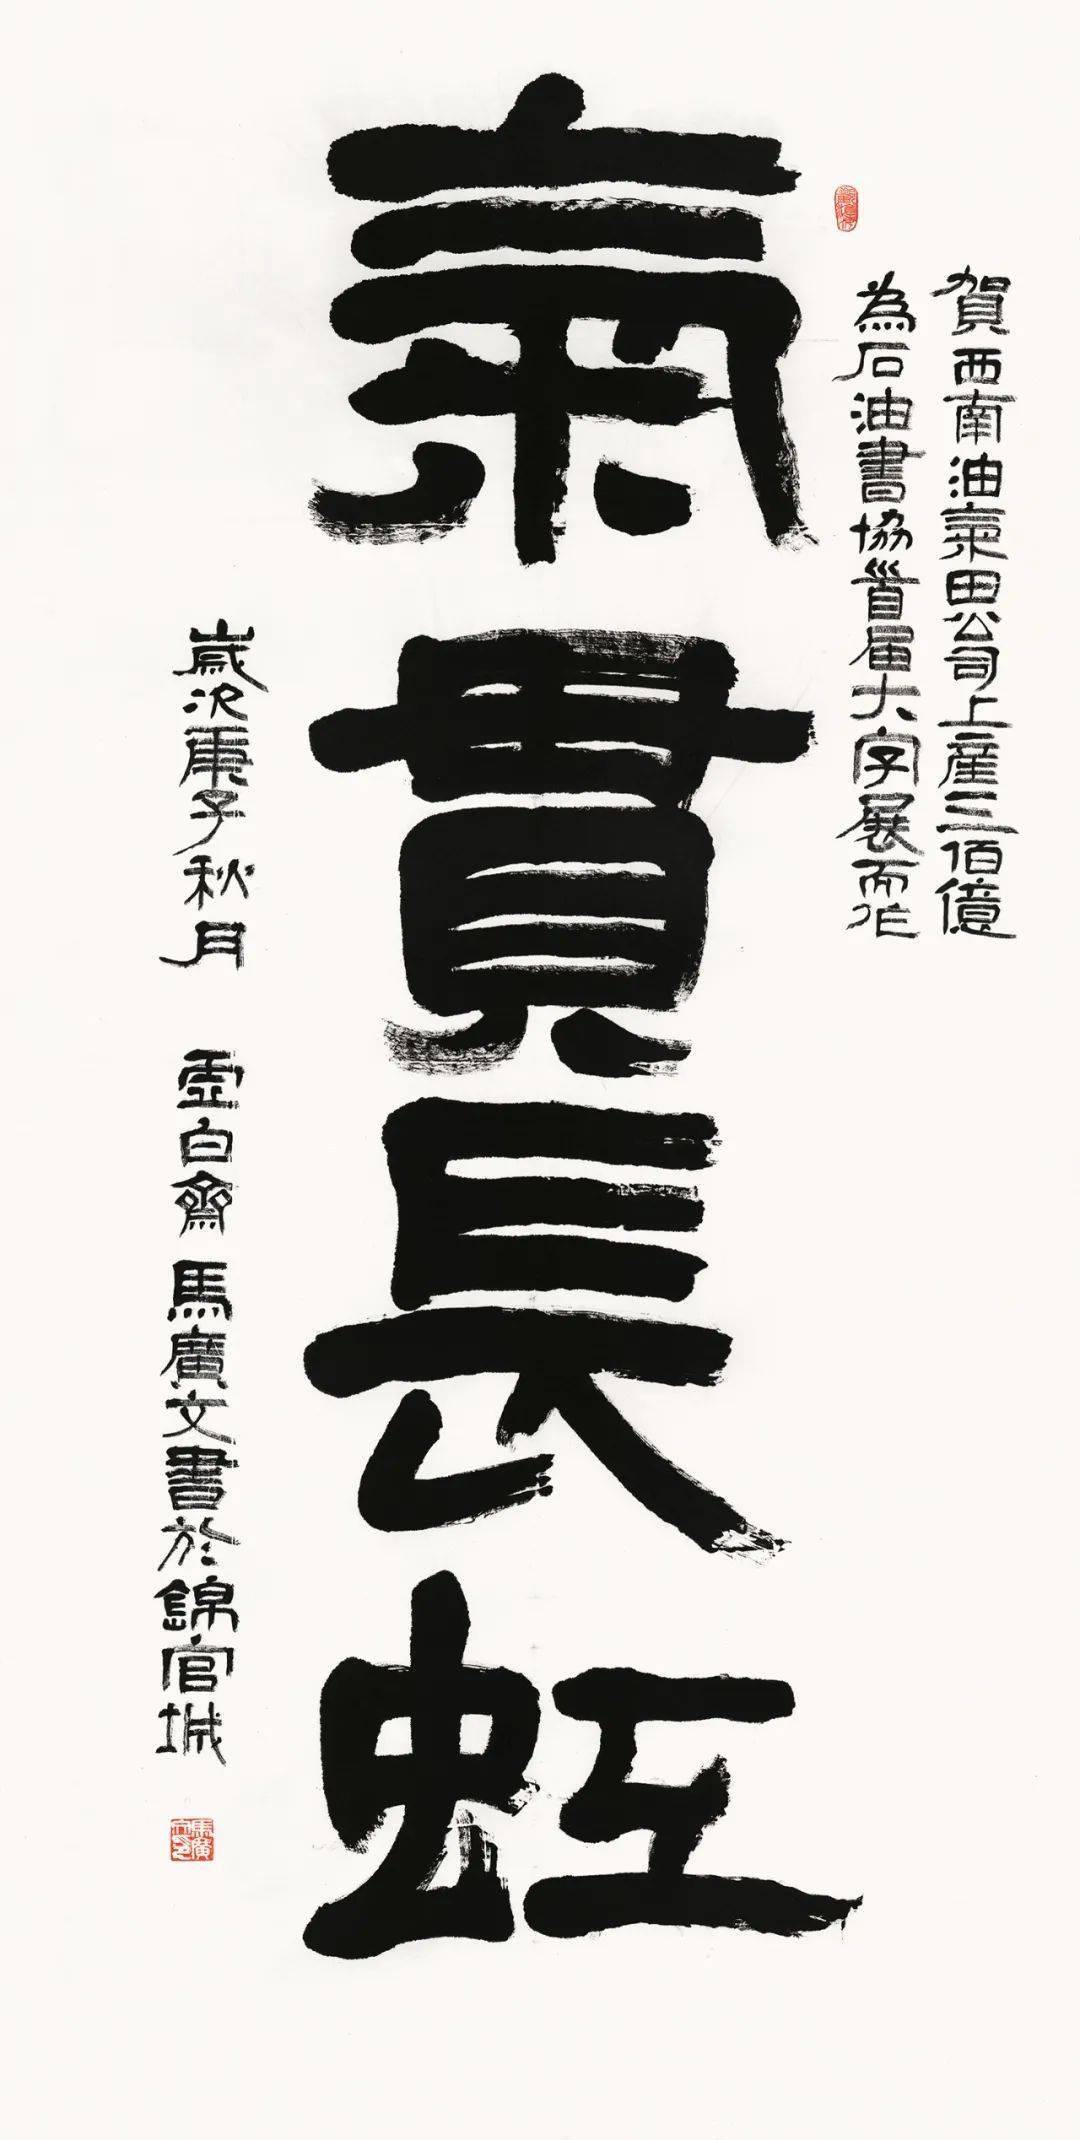 賀西南油氣田公司上産三佰億
為石油書協首届大字展而作
氣貫長虹
歲次庚子秋月 虛白齋 馬廣文書於錦官城
馬廣文印